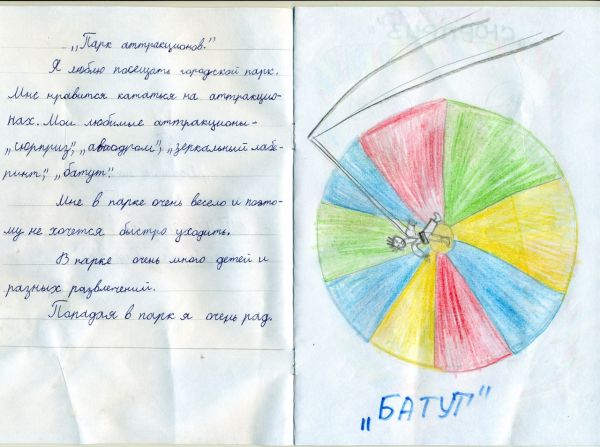 „Парк аттракционов."
Я люблю посещать городской парк.
Мне нравится кататься на аттракцио-
нах. Мои любимые аттракционы-
„сюрприз", „автодром", „зеркальный лабе-
ринт", „батут".
Мне в парке очень весело и поэто-
му не хочется быстро уходить.
В парке очень много детей и
разных развлечений.
Попадая в парк я очень рад.
„БАТУТ"